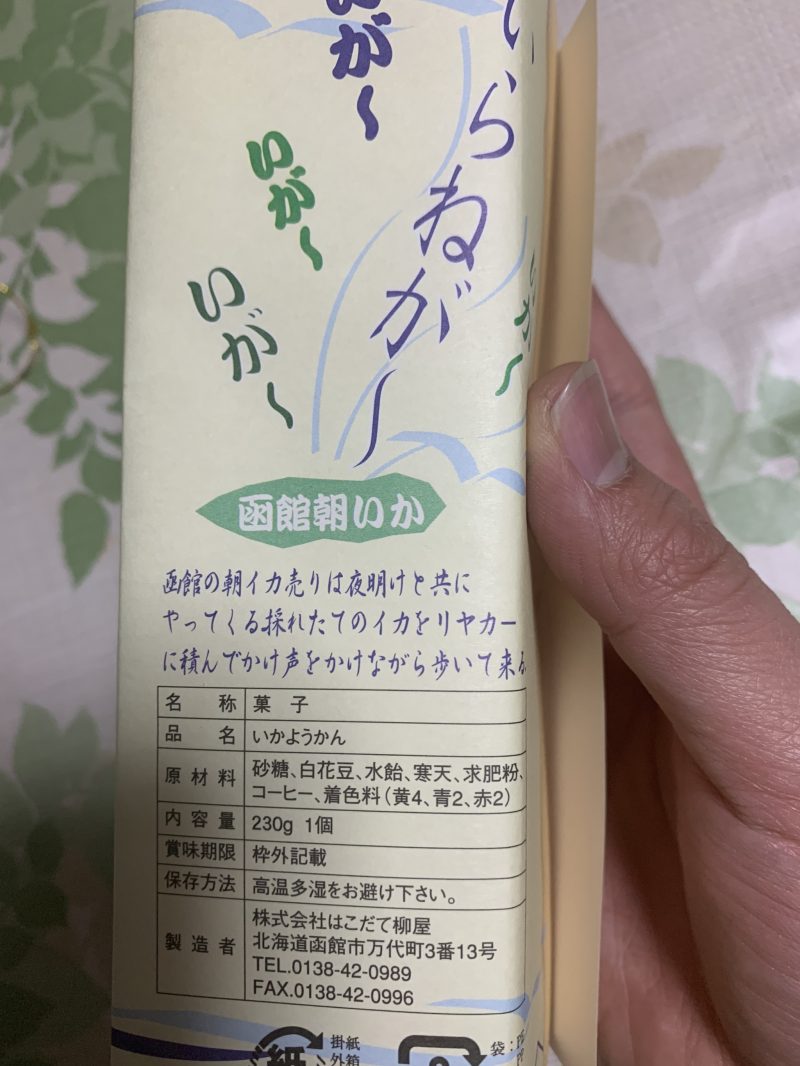 いが〜
いらねがー
いがー
いがー
いがー
函館朝いか
函館の朝イカ売りは夜明けと共に
やってくる採れたてのイカをリヤカー
に積んでかけ声をかけながら歩いて来る
名 称 菓 子
品 名 いかようかん
原材料 砂糖、白花豆、水飴、寒天、求肥粉、
コーヒー、着色料(黄4、青2、赤2)
内容量 230g 1個
賞味期限 枠外記載
保存方法 高温多湿をお避け下さい。
製造者 株式会社はこだて柳屋
北海道函館市万代町3番13号
TEL.0138-42-0989
FAX.0138-42-0996
紙
掛紙
外箱
袋: